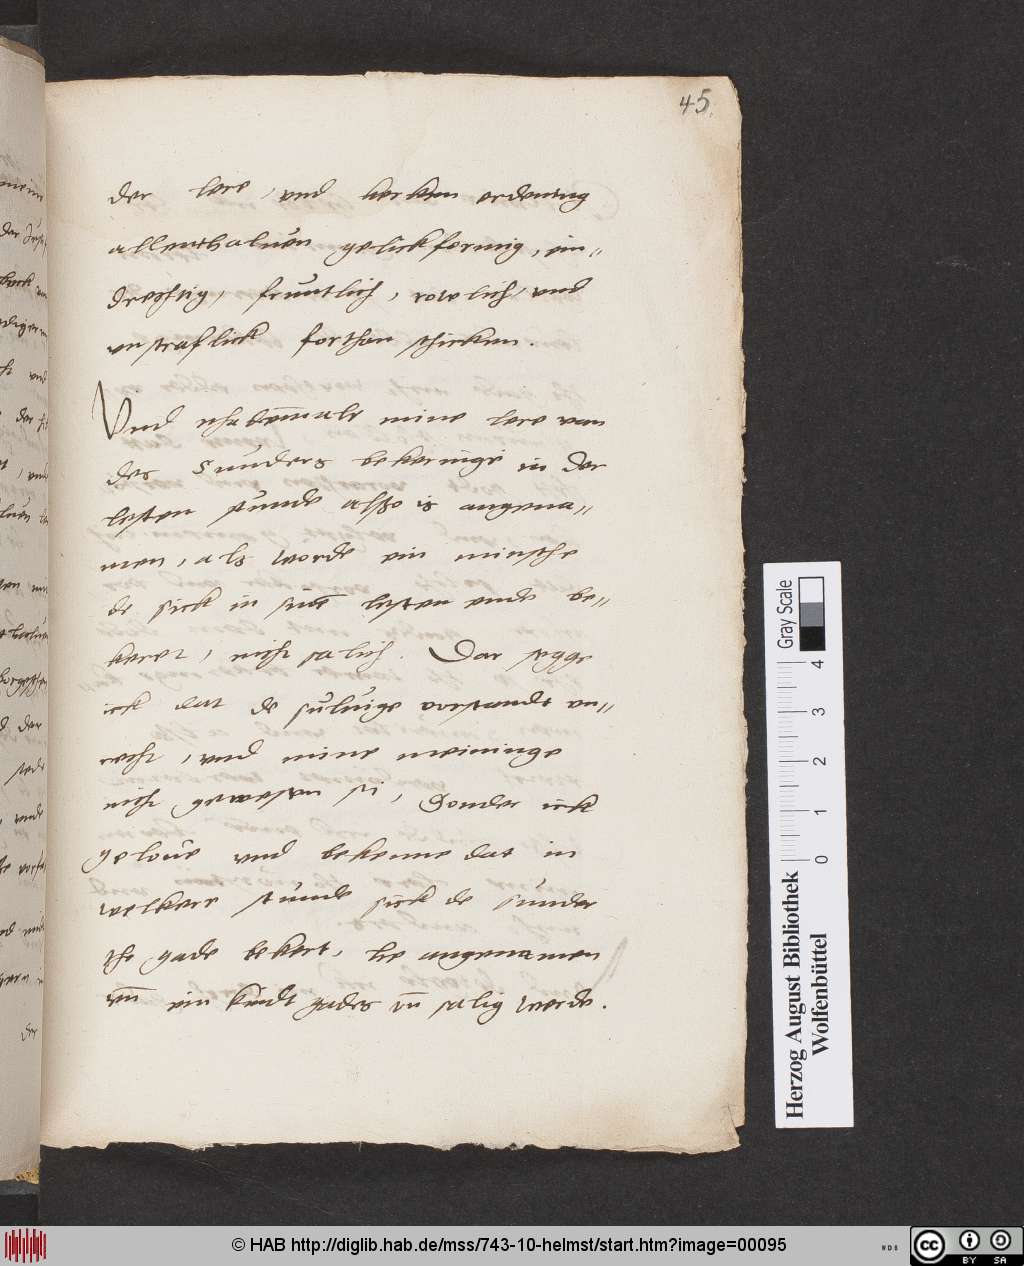 45.
der lere, und kerken ordenung
allenthaluen gelickformig, ein=
drechtig, fruntlich, rowlich, und
unstraflick forthan schicken.
Und nhademmals mine lere van
des Sunders bekeringe in der
lesten stunde alßo is angena=
men, als worde ein minsche
de sick in sine lesten ende be=
keret, nicht salich. Dar segge
ick dat de suluige vorstandt un=
recht, und mine meininge
nicht gewesen si, Sonder ick
gelove und bekenne dat in
welkere stunde sick de sunder
tho gade bekert, he angenamen
un ein kindt gades un salig werde.
der
Herzog August Bibliothek
Wolfenbüttel
0 1 2 3 4
Gray Scale
© HAB http://diglib.hab.de/mss/743-10-helmst/start.htm?image=00095
cc BY SA